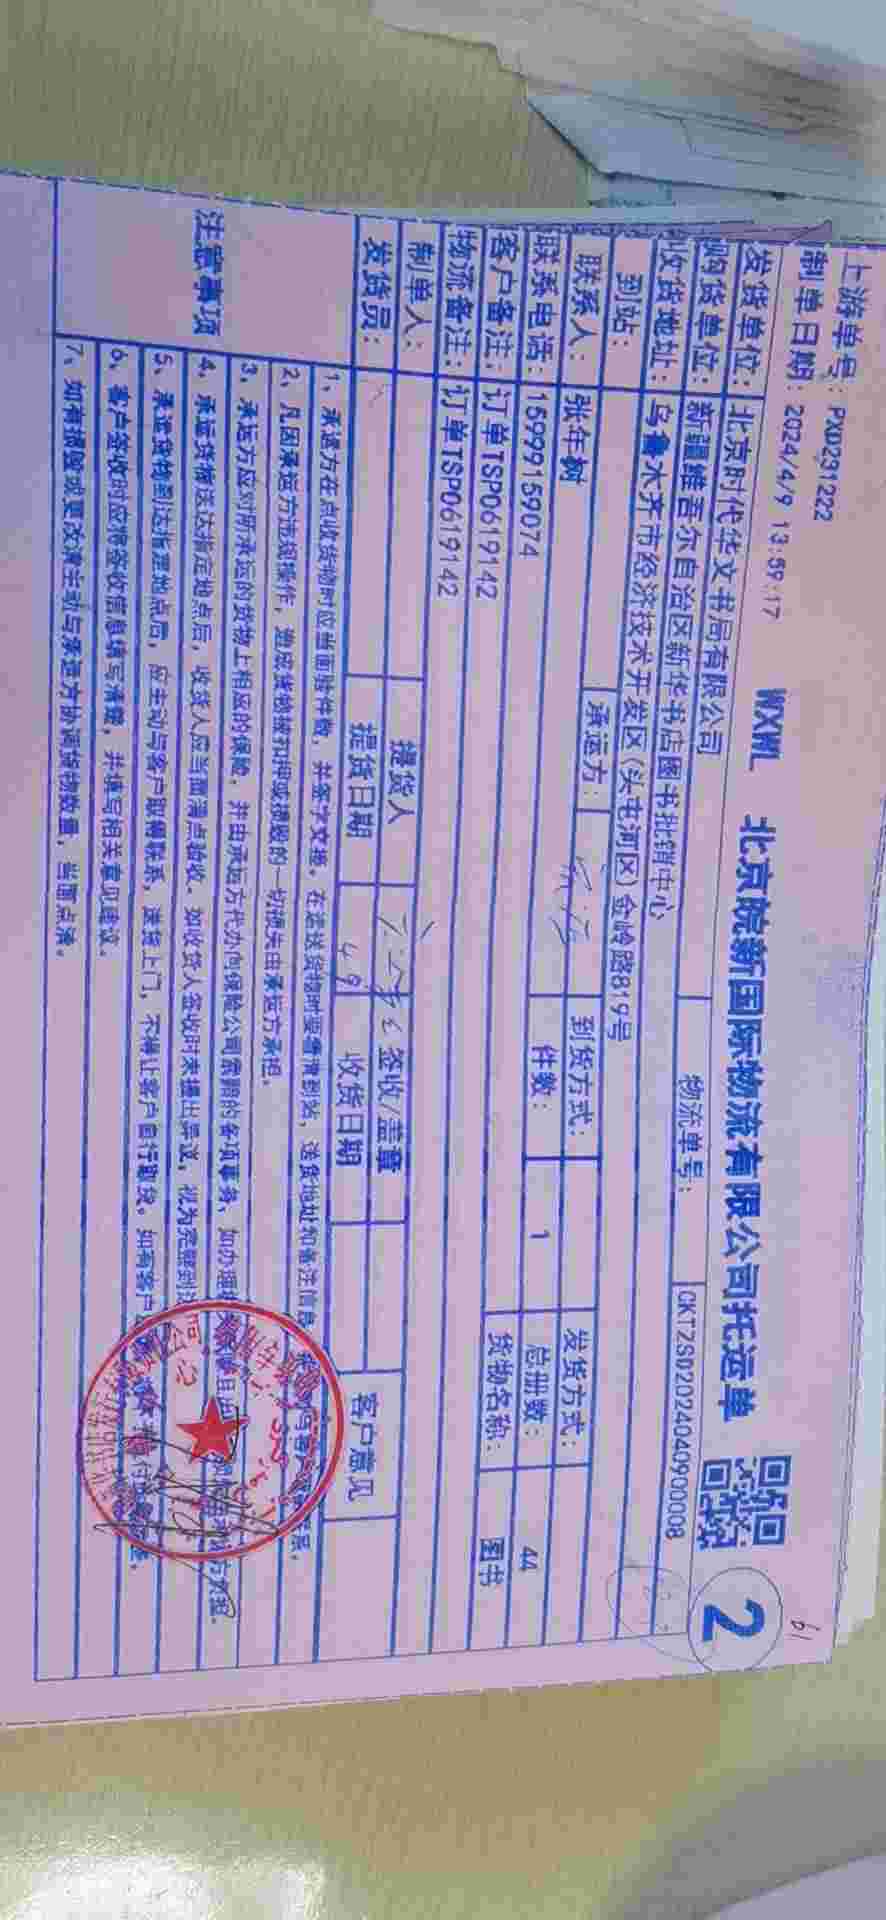 上游单号：PXD231222
制单日期：2024/4/9 13:59:17
WXWL 北京皖新国际物流有限公司托运单
2
61
发货单位： 北京时代华文书局有限公司
购货单位： 新疆维吾尔自治区新华书店图书批销中心 物流单号： CKTZSD202404090008
收货地址： 乌鲁木齐市经济技术开发区(头屯河区)金岭路819号
到站： 承运方： 到货方式： 发货方式：
联系人： 张年树 件数： 1 总册数： 44
联系电话： 15999159074 货物名称： 图书
客户备注： 订单TSP0619142
物流备注： 订单TSP0619142
制单人： 提货人 签收/盖章 客户意见
发货员： 提货日期 4.9 收货日期
注意事项
1、承运方在点收货物时应当面验件数，并签字交接。在运送货物时要看清到站，送货地址和备注信息
2、凡因承运方违规操作，造成货物被扣押或损毁的一切损失由承运方承担。
3、承运方应对所承运的货物上相应的保险，并由承运方代办向保险公司索赔的各项事务，如办理
4、承运货物送达指定地点后，收货人应当面清点验收。如收货人签收时未提出异议，视为完整到达
5、承运货物到达指定地点后，应主动与客户取得联系，送货上门，不得让客户自行取货。如有客户
6、客户签收时应将签收信息填写清楚，并填写相关意见建议。
7、如有损毁或更改请主动与承运方协调货物数量，当面点清。